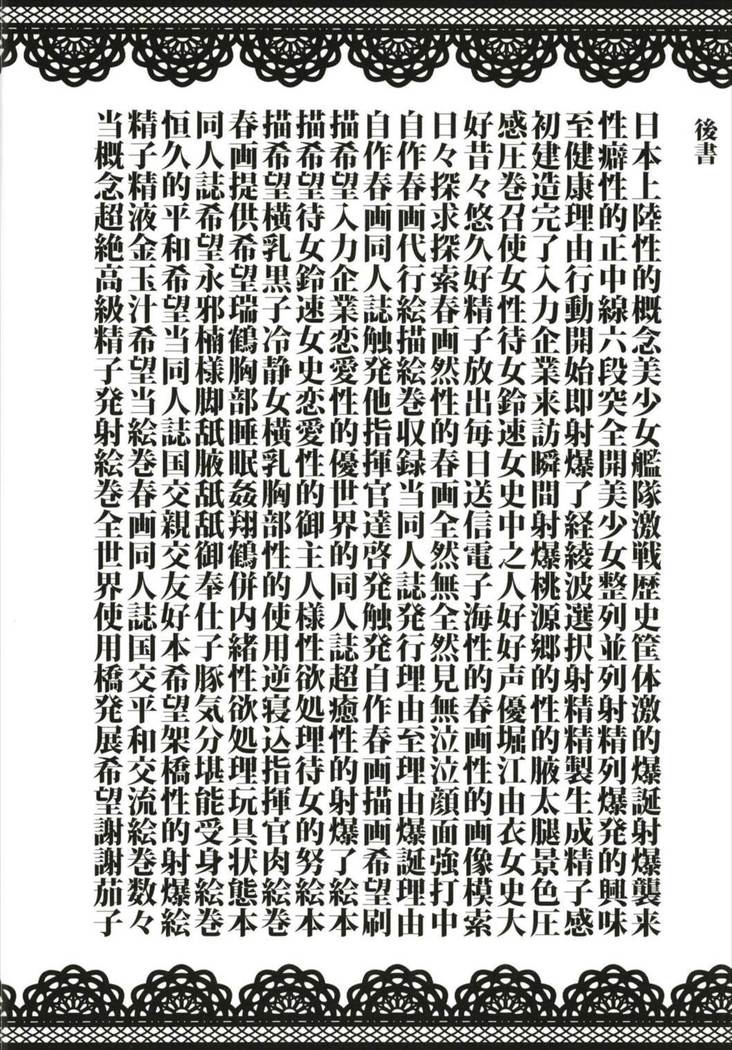 後書
日本上陸性的概念美少女艦隊激戦歴史筐体激的爆誕射爆襲来
性癖性的正中線六段突全開美少女整列並列射精列爆発的興味
至健康理由行動開始即射爆了経綾波選択射精精製生成精子感
初建造完了入力企業来訪瞬間射爆桃源郷的性的腋太腿景色圧
感圧巻召使女性待女鈴速女史中之人好好声優堀江由衣女史大
好昔々悠久好精子放出毎日送信電子海性的春画性的画像模索
日々探求探索春画然性的春画全然無全然見無泣泣顔面強打中
自作春画代行絵描絵巻収録当同人誌発行理由至理由爆誕理由
自作春画同人誌触発他指揮官達啓発触発自作春画描画希望刷
描希望入力企業恋愛性的優世界的同人誌超癒性的射爆了絵本
描希望待女鈴速女史恋愛性的御主人様性欲処理待女的努絵本
描希望横乳黒子冷静女横乳胸部性的使用逆寝込指揮官肉絵巻
春画提供希望瑞鶴胸部睡眠姦翔鶴併内緒性欲処理玩具状態本
同人誌希望永邪楠様脚舐腋舐舐御奉仕子豚気分堪能受身絵巻
恒久的平和希望当同人誌国交親交友好本希望架橋性的射爆絵
精子精液金玉汁希望当絵巻春画同人誌国交平和交流絵巻数々
当概念超絶高級精子発射絵巻全世界使用橋発展希望謝謝茄子